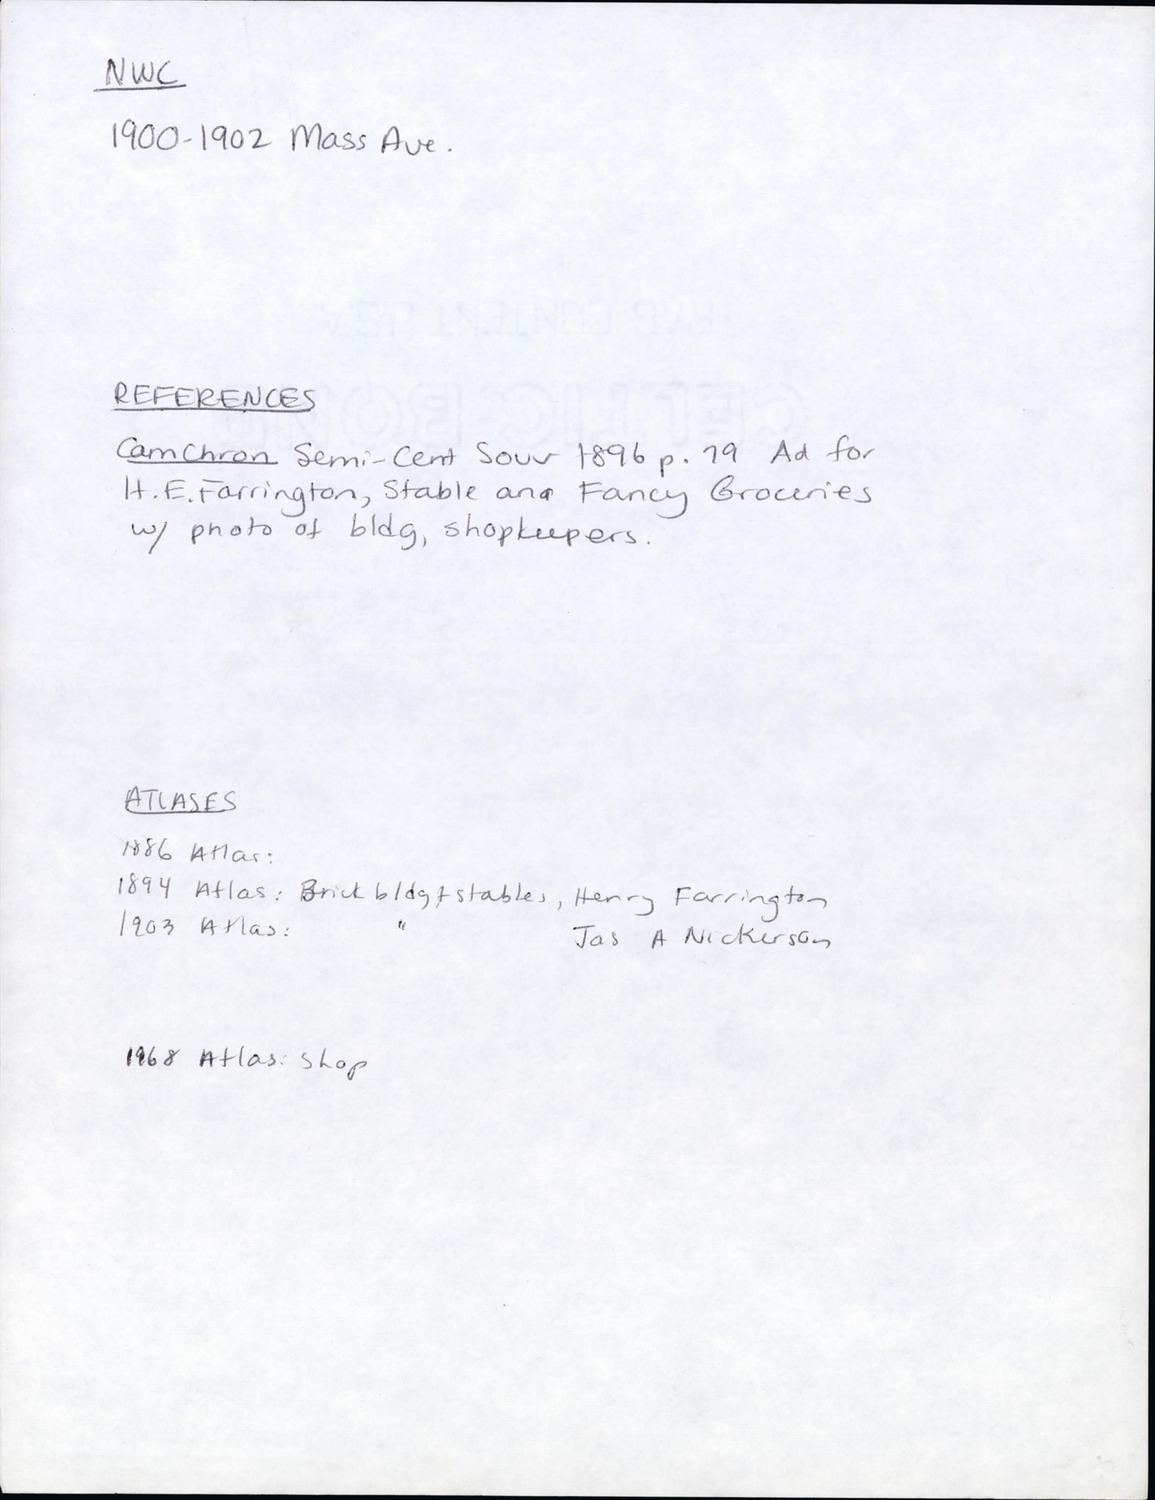 NWC
1900-1902 Mass Ave.
REFERENCES
CamChron Semi-Cent Souv 1896 p. 79 Ad for
H.E. Farrington, Stable and Fancy Groceries
w/ photo of bldg, shopkeepers.
ATLASES
1886 Atlas:
1894 Atlas: Brick bldg + stables, Henry Farrington
1903 Atlas: " Jas A Nickerson
1968 Atlas: Shop
CELTIC BOND